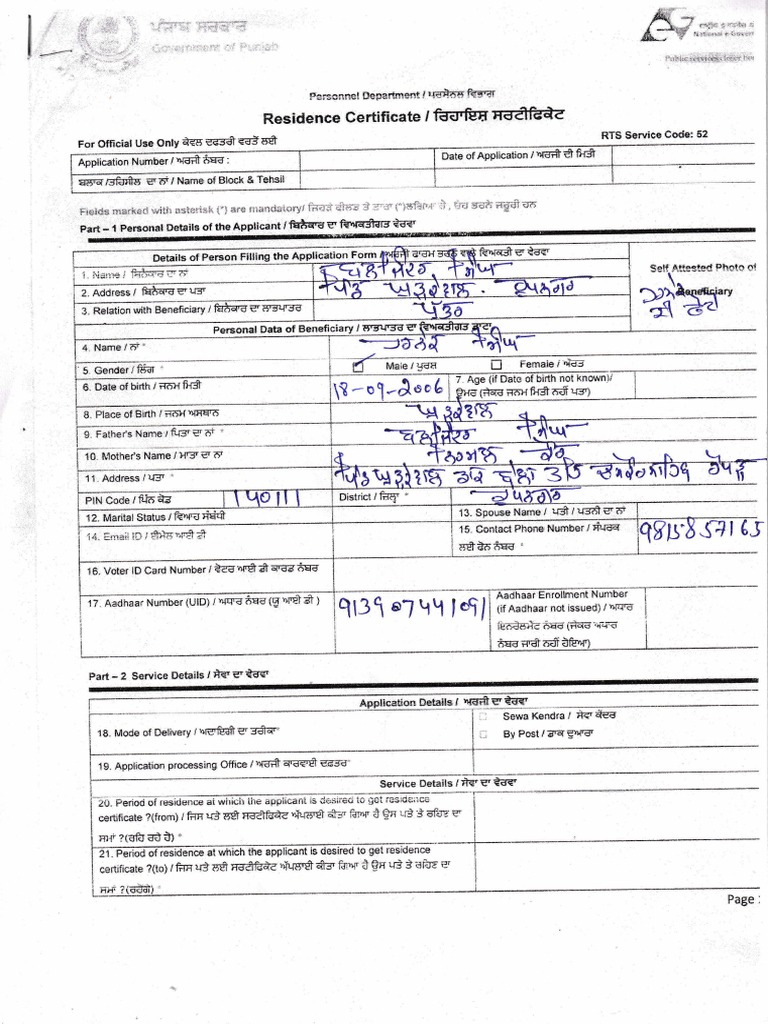 ਪੰਜਾਬ ਸਰਕਾਰ
Government of Punjab
National e-Govern
Personnel Department / ਪਰਸੋਨਲ ਵਿਭਾਗ
Residence Certificate / ਰਿਹਾਇਸ਼ ਸਰਟੀਫਿਕੇਟ
For Official Use Only ਕੇਵਲ ਦਫਤਰੀ ਵਰਤੋਂ ਲਈ
RTS Service Code: 52
Application Number / ਅਰਜੀ ਨੰਬਰ :
Date of Application / ਅਰਜੀ ਦੀ ਮਿਤੀ
ਬਲਾਕ /ਤਹਿਸੀਲ ਦਾ ਨਾਂ / Name of Block & Tehsil
Fields marked with asterisk (*) are mandatory/ ਜਿਹੜੇ ਫੀਲਡ ਤੇ ਤਾਰਾ (*)ਲਗਿਆ ਹੈ , ਓਹ ਭਰਨੇ ਜ਼ਰੂਰੀ ਹਨ
Part – 1 Personal Details of the Applicant / ਬਿਨੈਕਾਰ ਦਾ ਵਿਅਕਤੀਗਤ ਵੇਰਵਾ
Details of Person Filling the Application Form / ਅਰਜੀ ਫਾਰਮ ਭਰਨ ਵਾਲੇ ਵਿਅਕਤੀ ਦਾ ਵੇਰਵਾ
1. Name / ਬਿਨੈਕਾਰ ਦਾ ਨਾਂ ਸਿੰਘ
Self Attested Photo of
2. Address / ਬਿਨੈਕਾਰ ਦਾ ਪਤਾ ਪਿੰਡ ਰੂਪਨਗਰ
Beneficiary
3. Relation with Beneficiary / ਬਿਨੈਕਾਰ ਦਾ ਲਾਭਪਾਤਰ ਪੁੱਤਰ
Personal Data of Beneficiary / ਲਾਭਪਾਤਰ ਦਾ ਵਿਅਕਤੀਗਤ ਡਾਟਾ
4. Name / ਨਾਂ * ਸਿੰਘ
5. Gender / ਲਿੰਗ * Male / ਪੁਰਸ਼ Female / ਔਰਤ
6. Date of birth / ਜਨਮ ਮਿਤੀ 18-09-2006 7. Age (if Date of birth not known)/
ਉਮਰ (ਜੇਕਰ ਜਨਮ ਮਿਤੀ ਨਹੀਂ ਪਤਾ)
8. Place of Birth / ਜਨਮ ਅਸਥਾਨ
9. Father's Name / ਪਿਤਾ ਦਾ ਨਾਂ * ਸਿੰਘ
10. Mother's Name / ਮਾਤਾ ਦਾ ਨਾਂ ਨਿਰਮਲ ਕੌਰ
11. Address / ਪਤਾ * ਪਿੰਡ
PIN Code / ਪਿੰਨ ਕੋਡ 140111 District / ਜਿਲ੍ਹਾ * ਰੂਪਨਗਰ
12. Marital Status / ਵਿਆਹ ਸੰਬੰਧੀ 13. Spouse Name / ਪਤੀ / ਪਤਨੀ ਦਾ ਨਾਂ
14. Email ID / ਈਮੇਲ ਆਈ ਡੀ 15. Contact Phone Number / ਸੰਪਰਕ
ਲਈ ਫੋਨ ਨੰਬਰ * 9815857165
16. Voter ID Card Number / ਵੋਟਰ ਆਈ ਡੀ ਕਾਰਡ ਨੰਬਰ
17. Aadhaar Number (UID) / ਅਧਾਰ ਨੰਬਰ (ਯੂ ਆਈ ਡੀ ) 913907441091 Aadhaar Enrollment Number
(if Aadhaar not issued) / ਅਧਾਰ
ਇਨਰੋਲਮੇਂਟ ਨੰਬਰ (ਜੇਕਰ ਅਧਾਰ
ਨੰਬਰ ਜਾਰੀ ਨਹੀਂ ਹੋਇਆ)
Part – 2 Service Details / ਸੇਵਾ ਦਾ ਵੇਰਵਾ
Application Details / ਅਰਜੀ ਦਾ ਵੇਰਵਾ
18. Mode of Delivery / ਅਦਾਇਗੀ ਦਾ ਤਰੀਕਾ*
Sewa Kendra / ਸੇਵਾ ਕੇਂਦਰ
By Post / ਡਾਕ ਦੁਆਰਾ
19. Application processing Office / ਅਰਜੀ ਕਾਰਵਾਈ ਦਫਤਰ*
Service Details / ਸੇਵਾ ਦਾ ਵੇਰਵਾ
20. Period of residence at which the applicant is desired to get residence
certificate ?(from) / ਜਿਸ ਪਤੇ ਲਈ ਸਰਟੀਫਿਕੇਟ ਅੱਪਲਾਈ ਕੀਤਾ ਗਿਆ ਹੈ ਉਸ ਪਤੇ ਤੇ ਰਹਿਣ ਦਾ
ਸਮਾਂ ?(ਰਹਿ ਰਹੇ ਹੋ) *
21. Period of residence at which the applicant is desired to get residence
certificate ?(to) / ਜਿਸ ਪਤੇ ਲਈ ਸਰਟੀਫਿਕੇਟ ਅੱਪਲਾਈ ਕੀਤਾ ਗਿਆ ਹੈ ਉਸ ਪਤੇ ਤੇ ਰਹਿਣ ਦਾ
ਸਮਾਂ ?(ਰਹੋਂਗੇ) *
Page